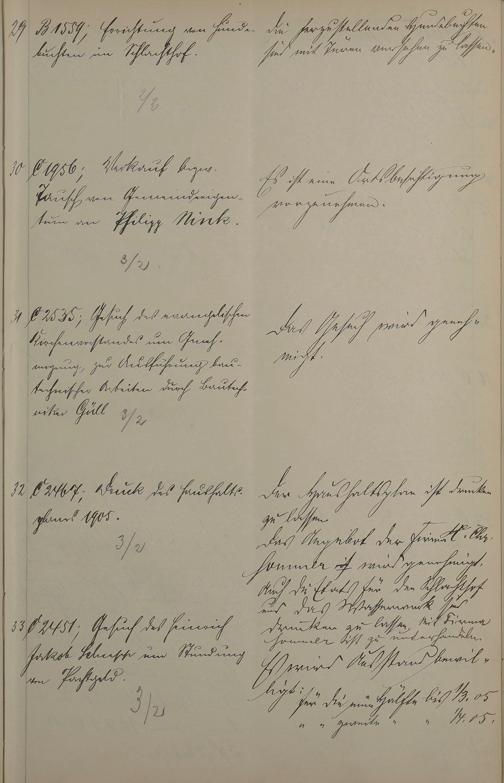 29 B 1559; Errichtung von Hunde-
buchten im Schlachthof.
2/2
Die herzustellenden Hundebuchten
sind mit Türen versehen zu lassen.
30 C 1956; Verkauf bezw.
Tausch von Gemeindeeigen-
tum an Philipp Nink.
3/2.
Es ist eine Ortsbesichtigung
vorzunehmen.
31 C 2535; Gesuch des evangelischen
Kirchenvorstandes um Geneh-
migung, zur Ausführung bau-
technischer Arbeiten durch Bautech-
niker Güll 3/2
Das Gesuch wird geneh-
migt.
32 C 2467; Druck des Haushalts-
planes 1905.
3/2
Der Haushaltsplan ist drucken
zu lassen
Das Angebot der Firma H. Chr.
Sommer wird genehmigt.
Auch die Etats für den Schlachthof
und das Wasserwerk sind
drucken zu lassen, mit Firma
Sommer ist zu unterhandeln.
33 C 2451; Gesuch des Heinrich
Jakob um Stundung
von Pachtgeld.
3/2
Es wird Ausstand bewil-
ligt:
für die eine Hälfte bis 1/3. 05
" " zweite " " 1/4. 05.